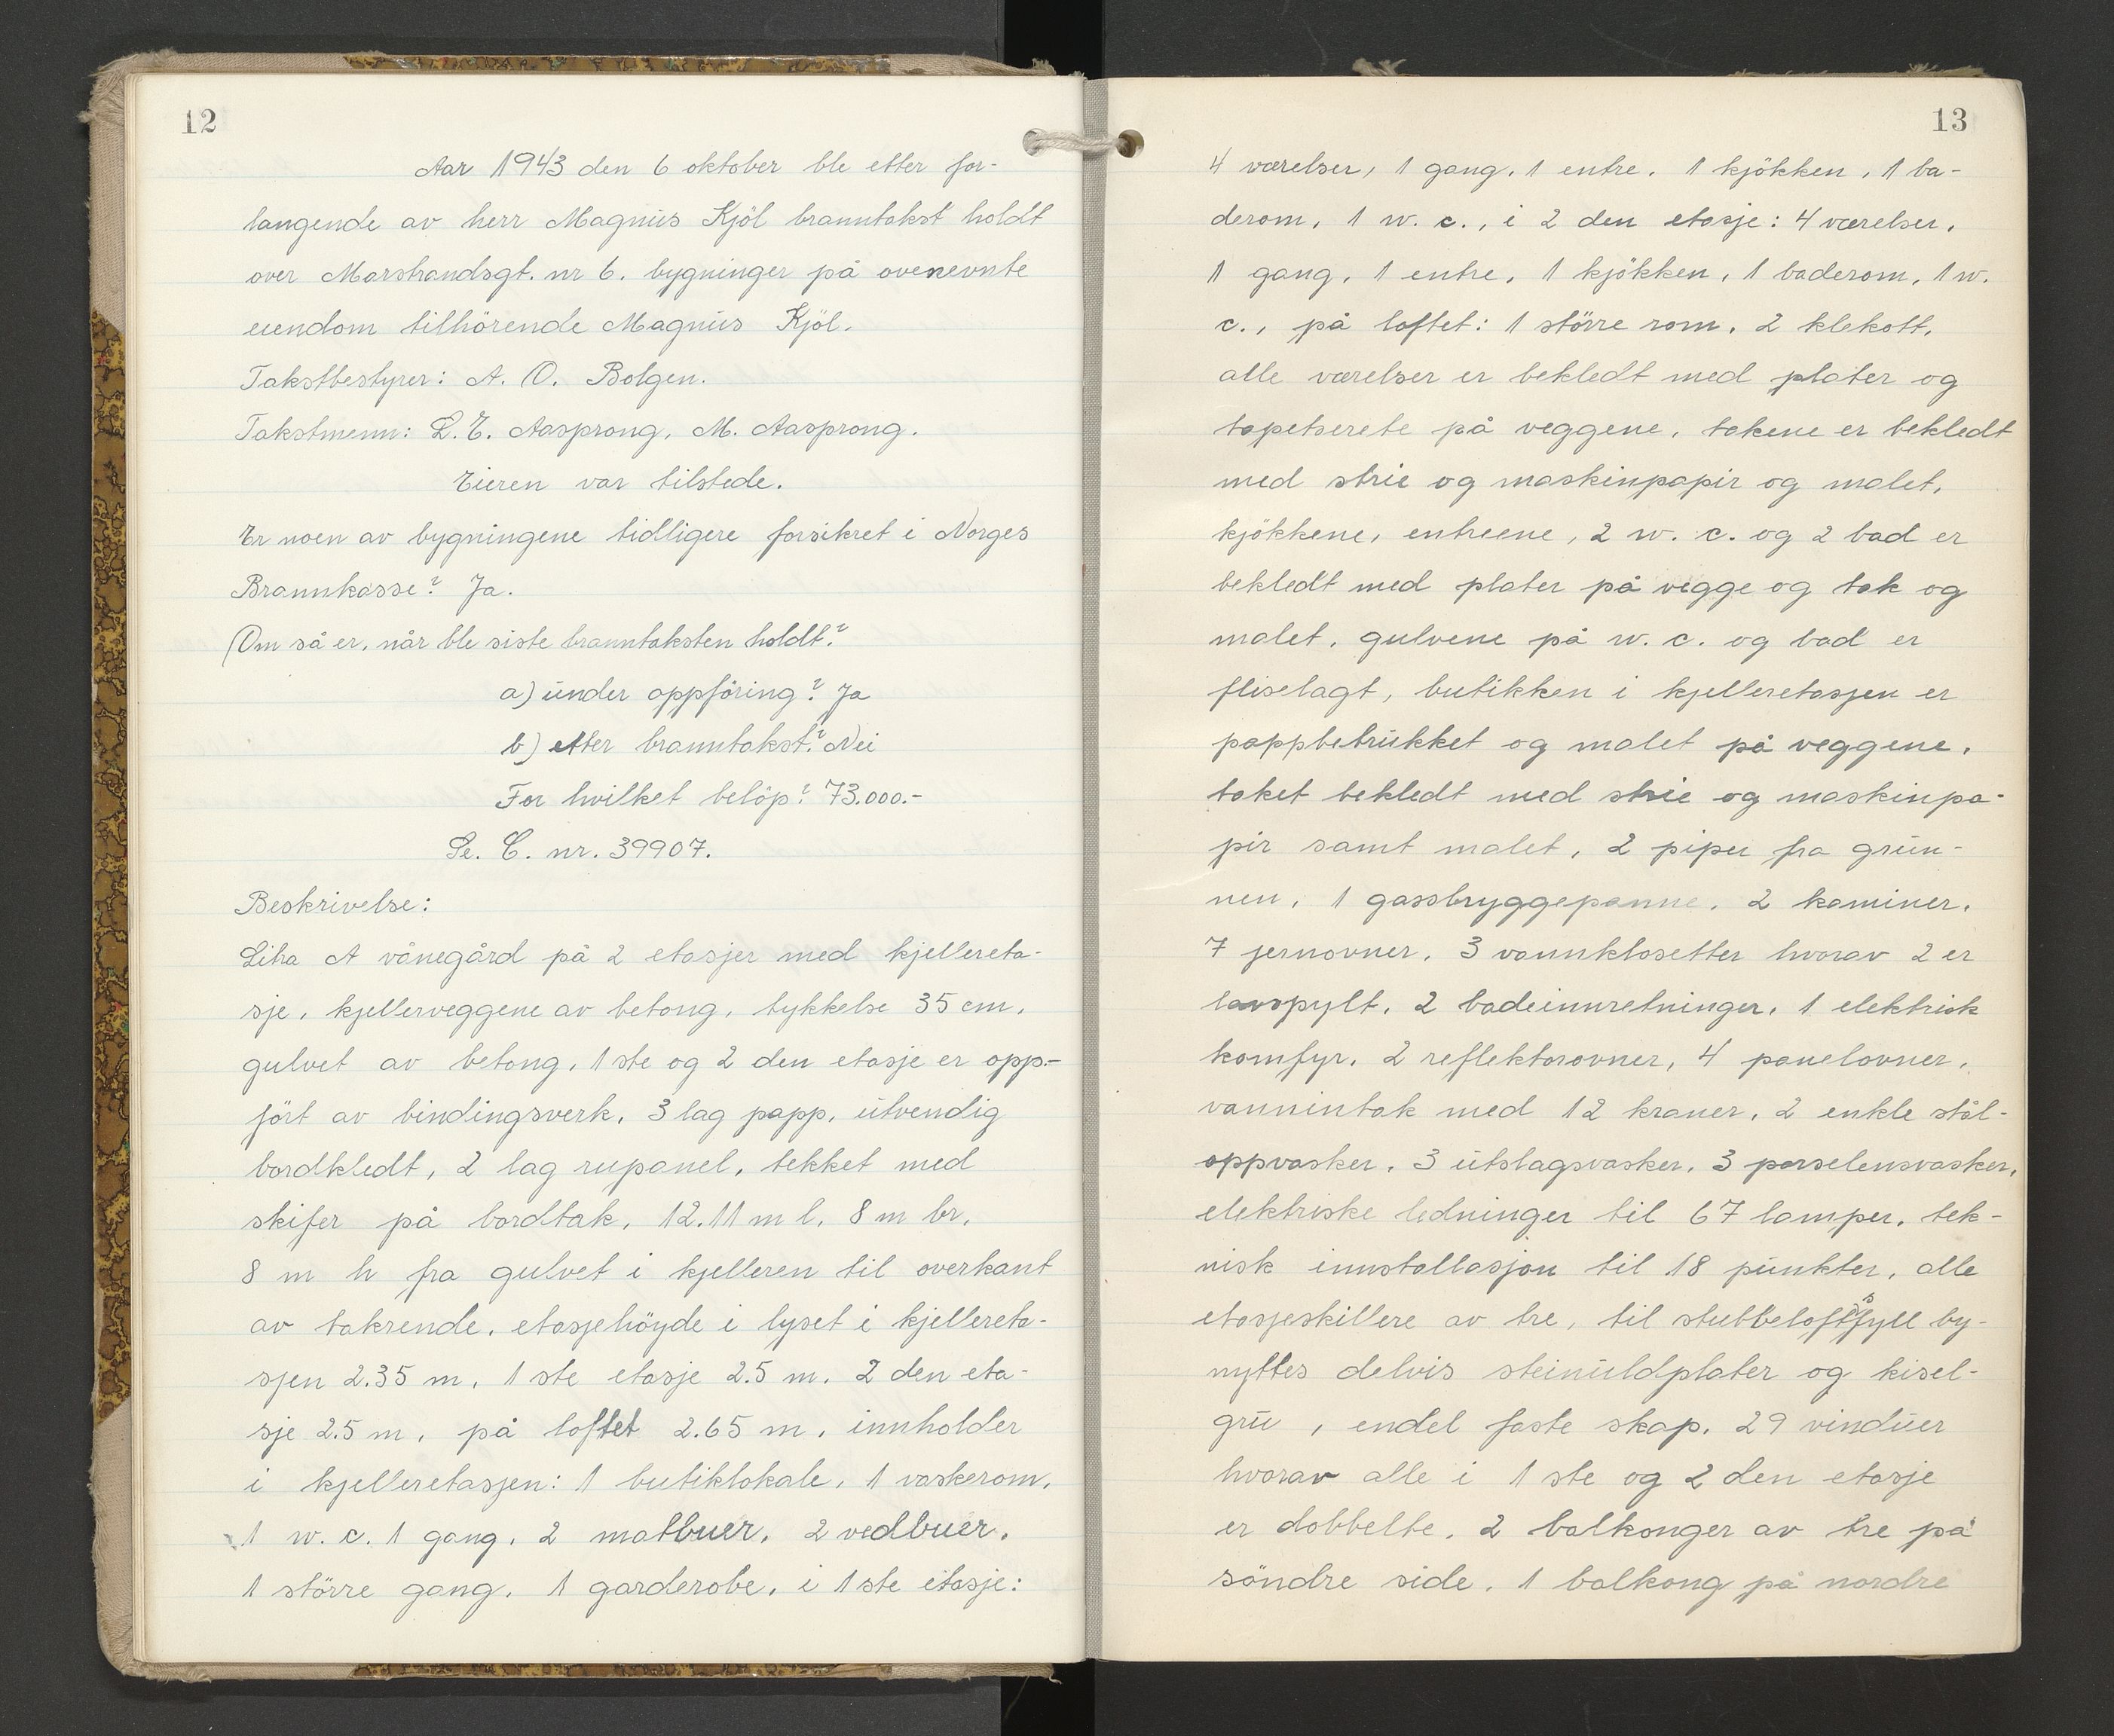 12
Aar 1943 den 6 oktober ble etter for-
langende av herr Magnus Kjöl branntakst holdt
over Marstrandsgt. nr 6. bygninger på ovenevnte
eiendom tilhörende Magnus Kjöl.
Takstbestyrer: A. O. Bolgen.
Takstmenn: L. E. Aasprong, M. Aasprong.
Eieren var tilstede.
Er noen av bygningene tidligere forsikret i Norges
Brannkasse? Ja.
Om så er, når ble siste branntaksten holdt?
a) under oppföring? Ja
b) etter branntakst? Nei
For hvilket belöp? 73.000.-
Le. C. nr. 39907.
Beskrivelse:
Litra A vånegård på 2 etasjer med kjellereta-
sje, kjellerveggene av betong, tykkelse 35 cm,
gulvet av betong, 1 ste og 2 den etasje er opp-
fört av bindingsverk, 3 lag papp, utvendig
bordkledt, 2 lag rupanel, tekket med
skifer på bordtak, 12.11 m l, 8 m br,
8 m h fra gulvet i kjelleren til overkant
av takrende, etasjehöyde i lyset i kjellereta-
sjen 2.35 m, 1 ste etasje 2.5 m, 2 den eta-
sje 2.5 m, på loftet 2.65 m, innholder
i kjelleretasjen: 1 butiklokale, 1 vaskerom,
1 w. c. 1 gang, 2 matbuer, 2 vedbuer,
1 större gang, 1 garderobe, i 1 ste etasje:
13
4 værelser, 1 gang, 1 entre, 1 kjökken, 1 ba-
derom, 1 w. c., i 2 den etasje: 4 værelser,
1 gang, 1 entre, 1 kjökken, 1 baderom, 1 w.
c., på loftet: 1 större rom, 2 klekott,
alle værelser er bekledt med plater og
tapetserete på veggene, takene er bekledt
med strie og maskinpapir og malet,
kjökkene, entreene, 2 w. c. og 2 bad er
bekledt med plater på vegge og tak og
malet, gulvene på w. c. og bad er
fliselagt, butikken i kjelleretasjen er
pappbetrukket og malet på veggene,
taket bekledt med strie og maskinpa-
pir samt malet, 2 piper fra grun-
nen, 1 gassbryggepanne, 2 kaminer,
7 jernovner, 3 vannklosetter hvorav 2 er
lavspylt, 2 badeinnretninger, 1 elektrisk
komfyr, 2 reflektorovner, 4 panelovner,
vannintak med 12 kraner, 2 enkle stål-
oppvasker, 3 utslagsvasker, 3 porselensvasker,
elektriske ledninger til 67 lamper, tek-
nisk innstallasjon til 18 punkter, alle
etasjeskillere av tre, til stubbeloftsfyll by-
nyttes delvis steinuldplater og kisel-
gru, endel faste skap, 29 vinduer
hvorav alle i 1 ste og 2 den etasje
er dobbelte, 2 balkonger av tre på
söndre side, 1 balkong på nordre